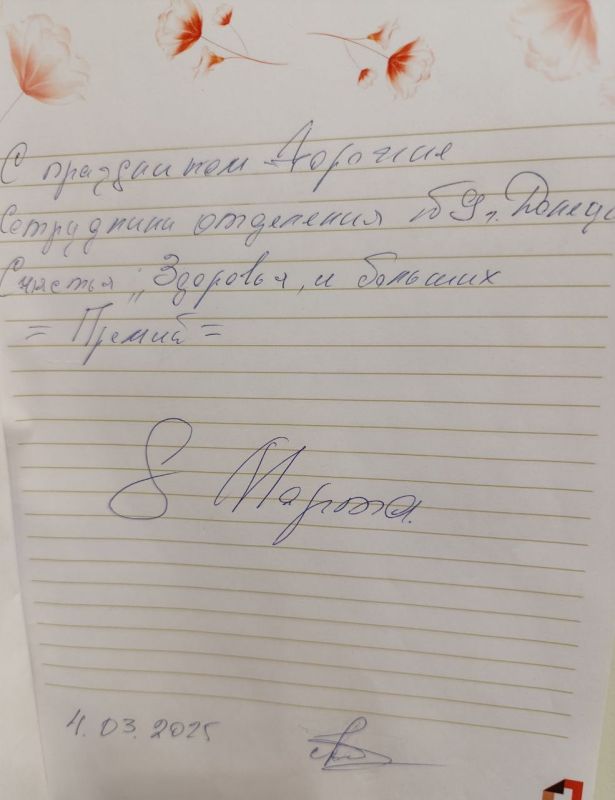 С праздником Дорогие
Сотрудники отделения №9 г. Донецк
Счастья, Здоровья, и больших
= Премий =
8 Марта.
4.03.2025